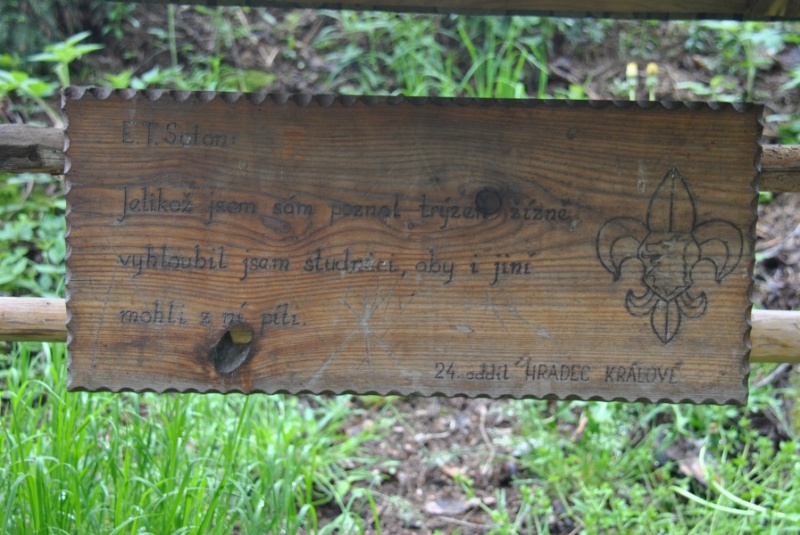 E. T. Seton:
Jelikož jsem sám poznal trýzeň žízně,
vyhloubil jsem studnici, aby i jiní
mohli z ní píti.
24. oddíl HRADEC KRÁLOVÉ